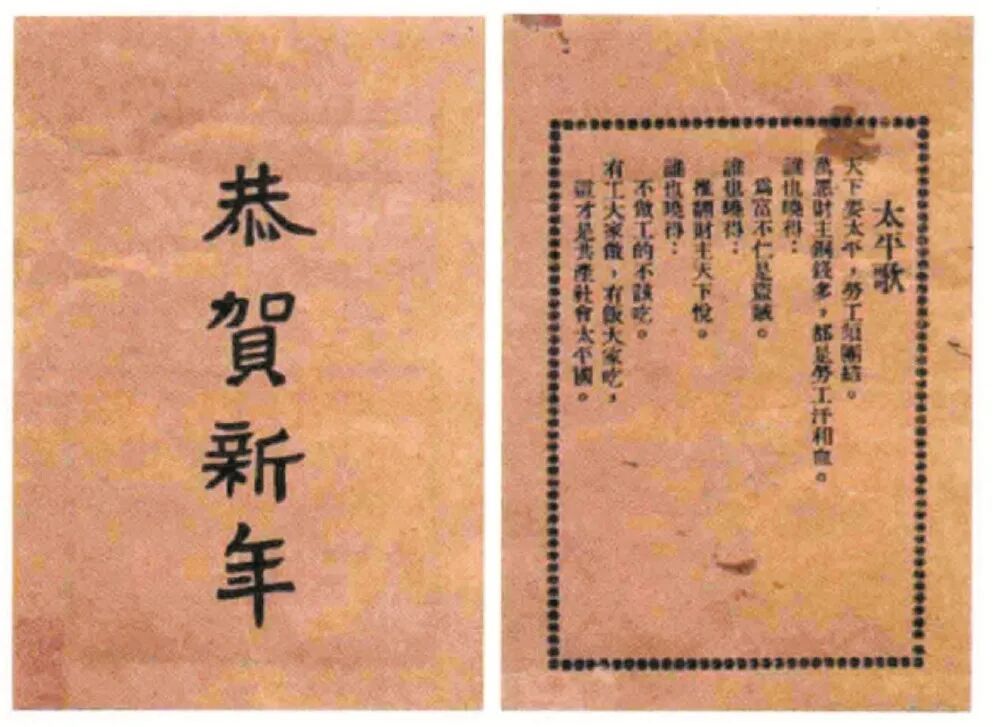 恭賀新年
太平歌
天下要太平，勞工須團結。
萬惡財主銅錢多，都是勞工汗和血。
誰也曉得：
為富不仁是盜賊。
誰也曉得：
推翻財主天下悅。
誰也曉得：
不做工的不該吃。
有工大家做，有飯大家吃，
這才是共產社會太平國。